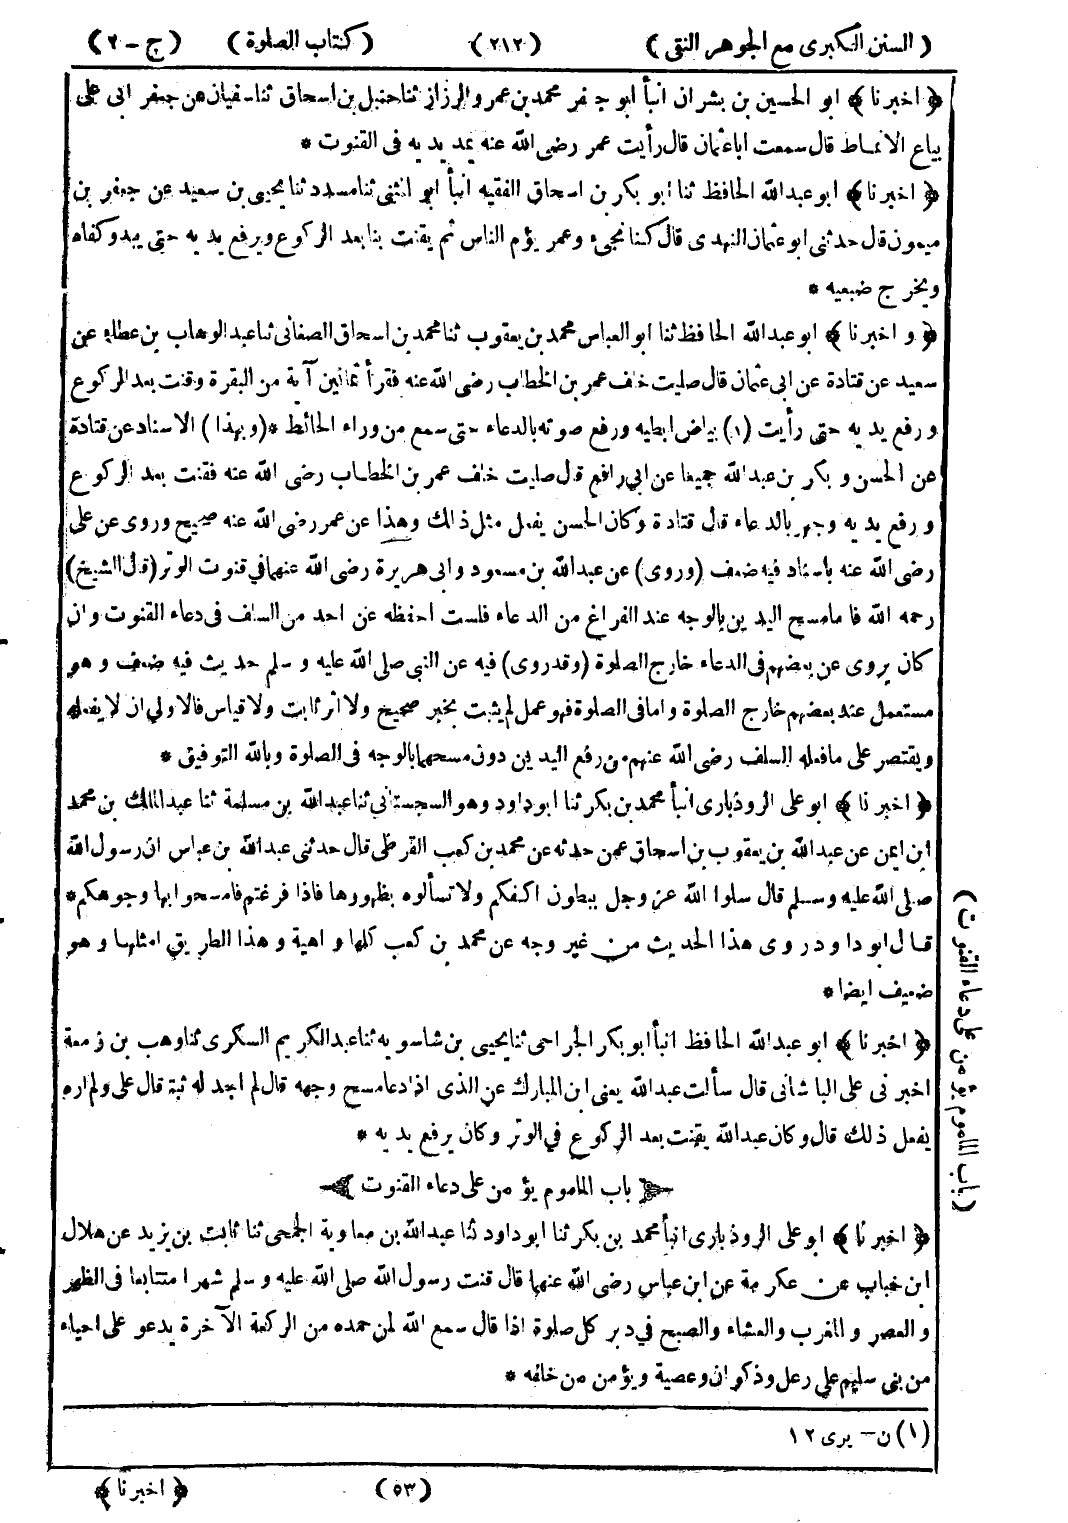 ( السنن الكبرى مع الجوهر النقى ) (٢١٢) ( كتاب الصلوة ) (ج - ٢)
﴿ اخبرنا ﴾ ابو الحسين بن بشران انبأ ابو جعفر محمد بن عمرو الرزاز ثنا حنبل بن اسحاق ثنا سفيان عن جعفر ابى على
بياع الانماط قال سمعت ابا عثمان قال رأيت عمر رضى الله عنه يمد يديه فى القنوت *
﴿ اخبرنا ﴾ ابو عبد الله الحافظ ثنا ابو بكر بن اسحاق الفقيه انبأ ابو المثنى ثنا مسدد ثنا يحيى بن سعيد عن جعفر بن
ميمون قال حدثنى ابو عثمان النهدى قال كنا نجىء وعمر يؤم الناس ثم يقنت بنا بعد الركوع ويرفع يديه حتى يبدو كفاه
ويخرج ضبعيه *
﴿ و اخبرنا ﴾ ابو عبد الله الحافظ ثنا ابو العباس محمد بن يعقوب ثنا محمد بن اسحاق الصغانى ثنا عبد الوهاب بن عطاء عن
سعيد عن قتادة عن ابى عثمان قال صليت خلف عمر بن الخطاب رضى الله عنه فقرأ ثمانين آية من البقرة وقنت بعد الركوع
ورفع يديه حتى رأيت (١) بياض ابطيه ورفع صوته بالدعاء حتى سمع من وراء الحائط *(وبهذا) الاسناد عن قتادة
عن الحسن وبكر بن عبد الله جميعا عن ابى رافع قال صليت خلف عمر بن الخطاب رضى الله عنه فقنت بعد الركوع
ورفع يديه وجهر بالدعاء قال قتادة وكان الحسن يفعل مثل ذالك وهذا عن عمر رضى الله عنه صحيح وروى عن على
رضى الله عنه باسناد فيه ضعف (وروى) عن عبد الله بن مسعود وابى هريرة رضى الله عنهما فى قنوت الوتر (قال الشيخ)
رحمه الله فاما مسح اليدين بالوجه عند الفراغ من الدعاء فلست احفظه عن احد من السلف فى دعاء القنوت وان
كان يروى عن بعضهم فى الدعاء خارج الصلوة (وقد روى) فيه عن النبى صلى الله عليه وسلم حديث فيه ضعف وهو
مستعمل عند بعضهم خارج الصلوة واما فى الصلوة فهو عمل لم يثبت بخبر صحيح ولا اثر ثابت ولا قياس فالاولى ان لا يفعله
ويقتصر على ما فعله السلف رضى الله عنهم من رفع اليدين دون مسحهما بالوجه فى الصلوة وبالله التوفيق *
﴿ اخبرنا ﴾ ابو على الروذبارى انبأ محمد بن بكر ثنا ابو داود وهو السجستانى ثنا عبد الله بن مسلمة ثنا عبد الملك بن محمد
ابن ايمن عن عبد الله بن يعقوب بن اسحاق عمن حدثه عن محمد بن كعب القرظى قال حدثنى عبد الله بن عباس ان رسول الله
صلى الله عليه وسلم قال سلوا الله عز وجل ببطون اكفكم ولا تسألوه بظهورها فاذا فرغتم فامسحوا بها وجوهكم *
قال ابو داود روى هذا الحديث من غير وجه عن محمد بن كعب كلها واهية وهذا الطريق امثلها وهو
ضعيف ايضا *
﴿ اخبرنا ﴾ ابو عبد الله الحافظ انبأ ابو بكر الجراحى ثنا يحيى بن شاسويه ثنا عبد الكريم السكرى ثنا وهب بن زمعة
اخبرنى على الباشانى قال سألت عبد الله يعنى ابن المبارك عن الذى اذا دعا مسح وجهه قال لم اجد له ثبتة قال على ولم اره
يفعل ذلك قال وكان عبد الله يقنت بعد الركوع فى الوتر وكان يرفع يديه *
باب الماموم يؤمن على دعاء القنوت
﴿ اخبرنا ﴾ ابو على الروذبارى انبأ محمد بن بكر ثنا ابو داود ثنا عبد الله بن معاوية الجمحى ثنا ثابت بن يزيد عن هلال
ابن خباب عن عكرمة عن ابن عباس رضى الله عنهما قال قنت رسول الله صلى الله عليه وسلم شهرا متتابعا فى الظهر
والعصر والمغرب والعشاء والصبح فى دبر كل صلوة اذا قال سمع الله لمن حمده من الركعة الآخرة يدعو على احياء
من بنى سليم على رعل وذكوان وعصية ويؤمن من خلفه *
(باب الماموم يؤمن على دعاء القنوت)
(١) ن - يرى ١٢
(٥٣) ﴿ اخبرنا ﴾